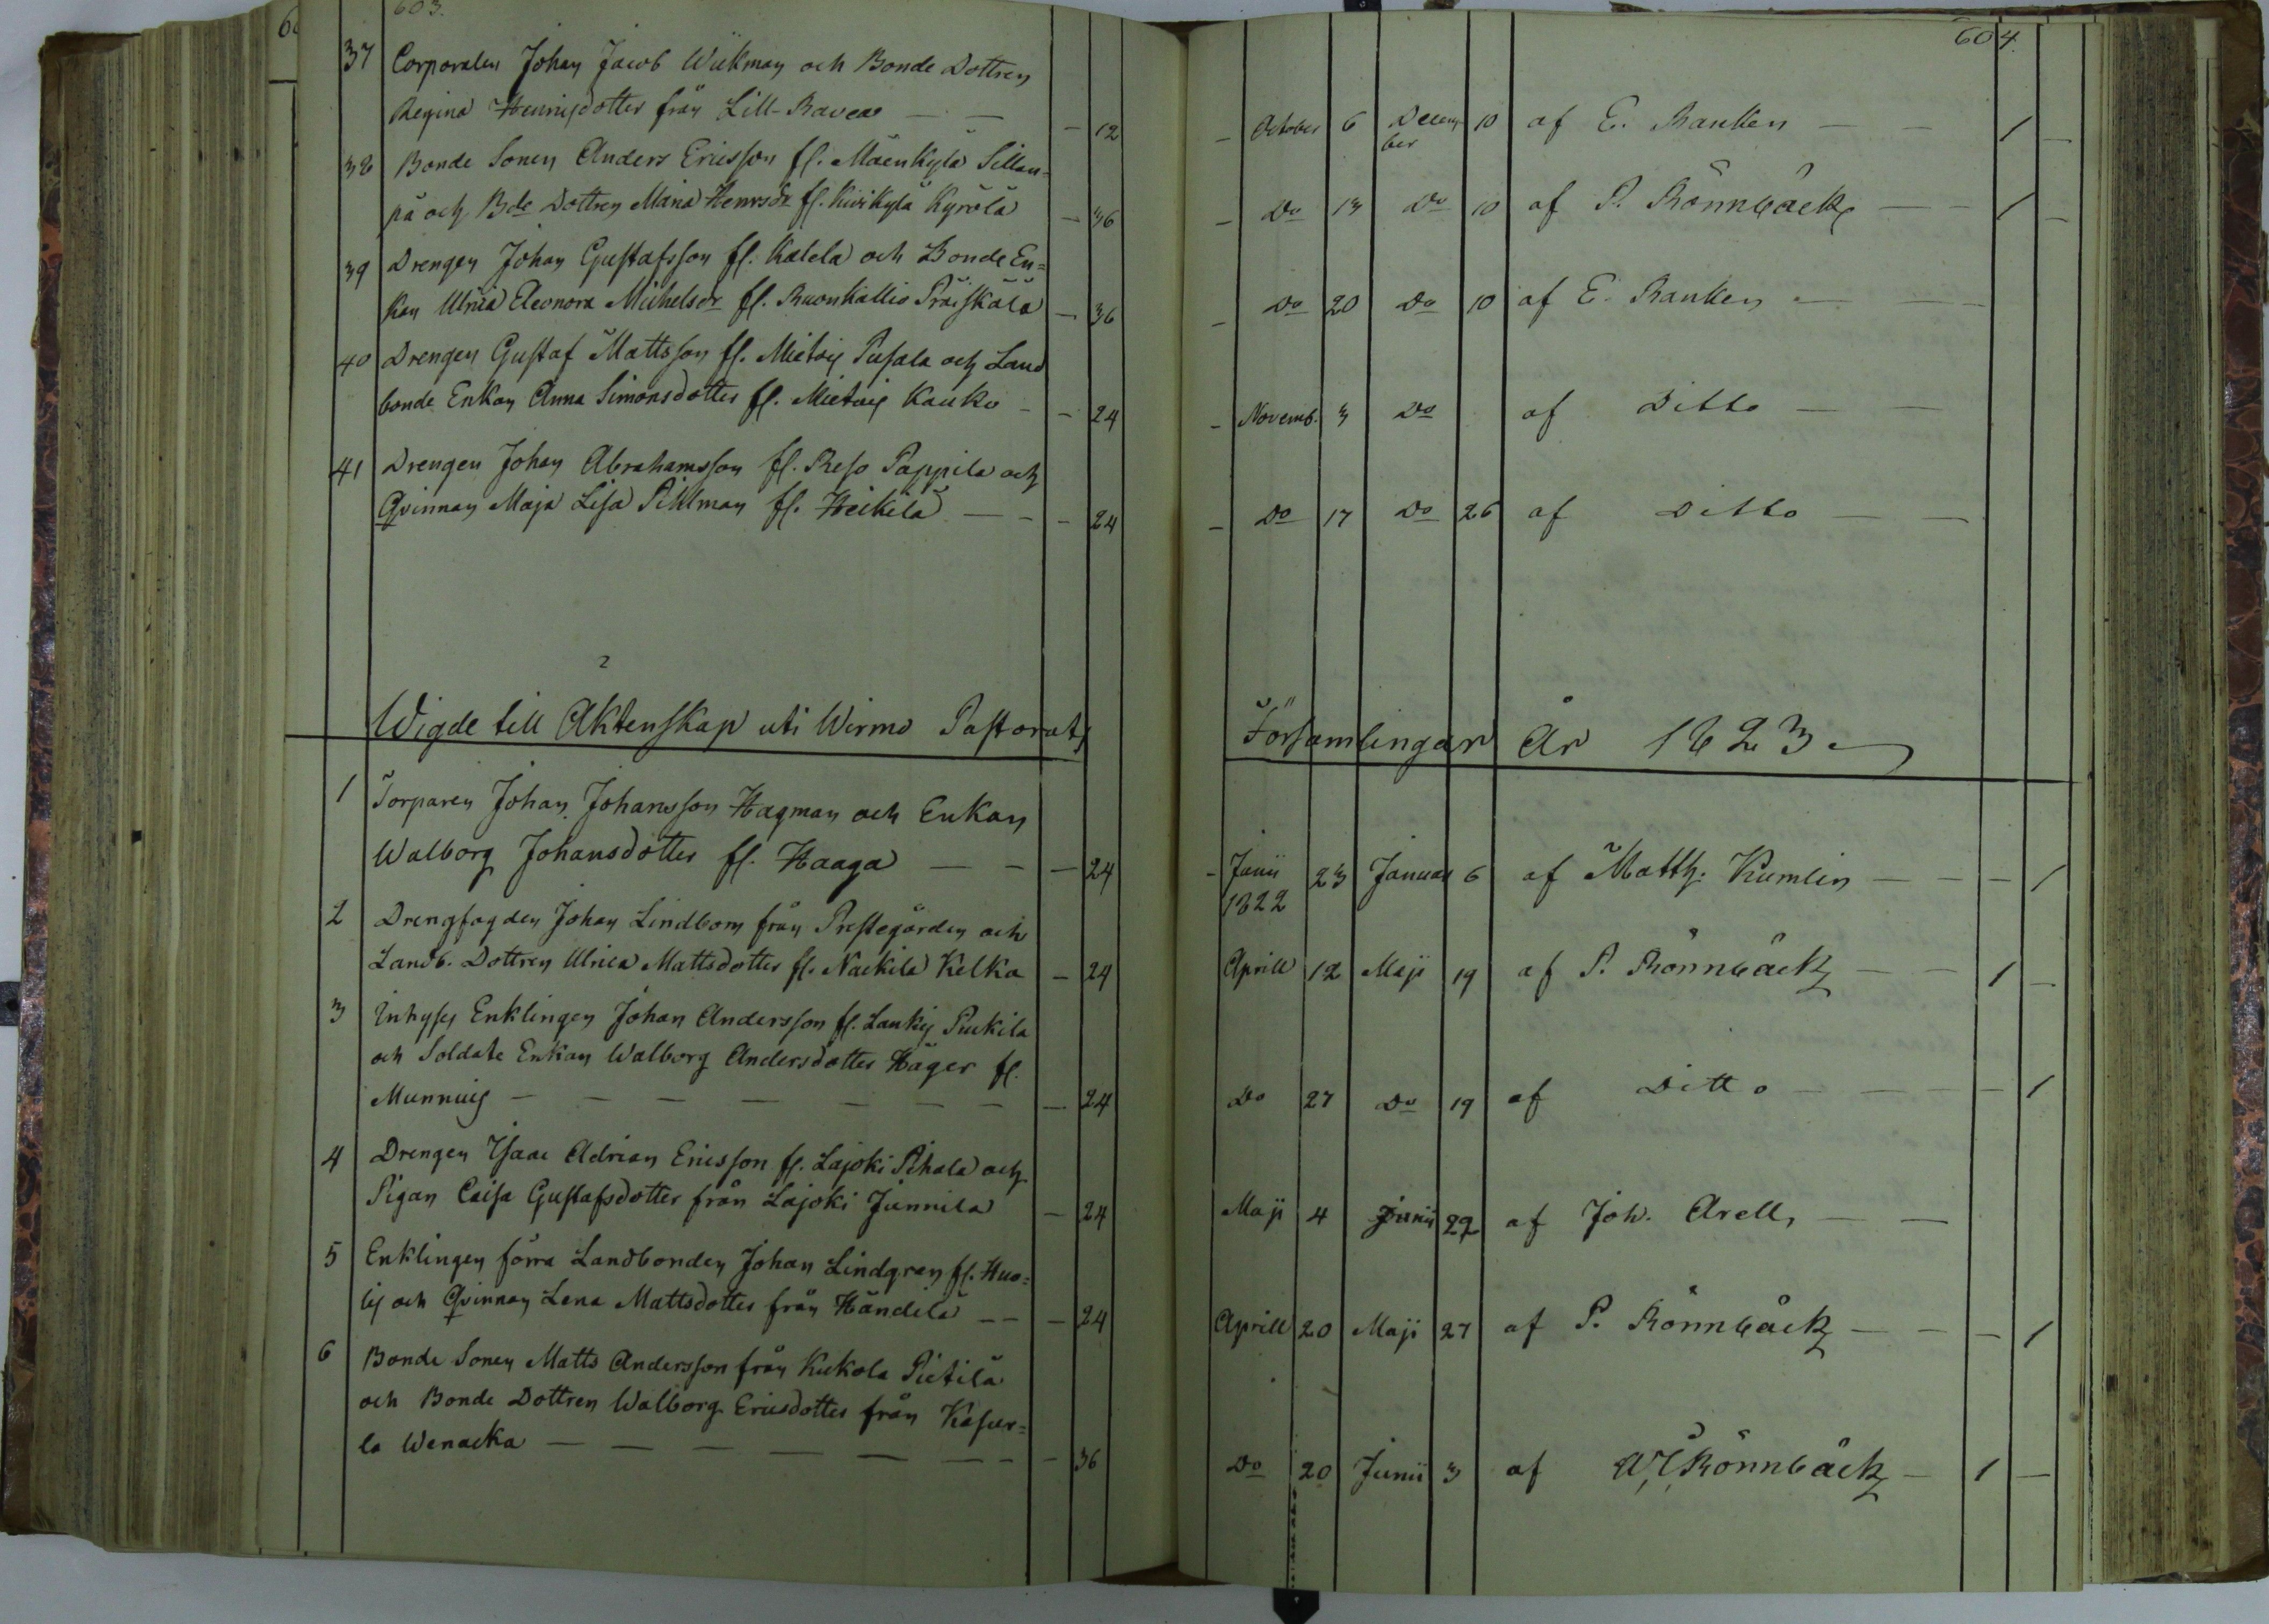 603.
37 Corporalen Johan Jacob Wikman och Bonde Dottren
Regina Henricsdotter från Lill-Ravea — — — 12
38 Bonde Sonen Anders Ericsson fr. Mäenkylä Sillan=
pä och Bde Dottren Maria Henrsdr fr. Kivikylä Kyrölä — 36
39 Drengen Johan Gustafsson fr. Kalela och Bonde En=
kan Ulrica Eleonora Michelsdr fr. Ruonkallio Präiskälä — 36
40 Drengen Gustaf Mattsson fr. Mietois Pusala och Land
bonde Enkan Anna Simonsdotter fr. Mietois Kauko — — 24
41 Drengen Johan Abrahamsson fr. Reso Pappila och
Qvinnan Maja Lisa Pihlman fr. Heikilä — — — 24
Wigde till Äktenskap uti Wirmo Pastorats
1 Torparen Johan Johansson Hagman och Enkan
Walborg Johansdotter fr. Haaga — — — 24
2 Drengfogden Johan Lindbom från Prestegården och
Landb. Dottren Ulrica Mattsdotter fr. Naekila Kelka — 24
3 Inhyses Enklingen Johan Andersson fr. Laukis Puckila
och Soldate Enkan Walborg Andersdotter Häger fr.
Munnuis — — — — — — — — 24
4 Drengen Isaac Adrian Ericsson fr. Lajoki Pihala och
Pigan Caisa Gustafsdotter från Lajoki Junnila — 24
5 Enklingen förra Landbonden Johan Lindgren fr. Huo=
lis och Qvinnan Lena Mattsdotter från Händilä — — — 24
6 Bonde Sonen Matts Andersson från Kukola Pietilä
och Bonde Dottren Walborg Ericsdotter från Kasur=
la Wenacka — — — — — — — — 36
604.
— October 6 Decem= 10 af E. Ranken — — 1 —
ber
— Do 13 Do 10 af P. Rönnbäck — — 1 —
— Do 20 Do 10 af E. Ranken — — —
— Novemb. 3 Do af Ditto — —
— Do 17 Do 26 af Ditto — —
Församlingar År 1823
— Junii 23 Januar 6 af Matth. Kumlin — — — 1
1822
Aprill 12 Maji 19 af P. Rönnbäck — — 1 —
Do 27 Do 19 af Ditto — — — — 1
Maji 4 Junii 29 af Joh. Arell, — —
Aprill 20 Maji 27 af P. Rönnbäck — — — 1
Do 20 Junii 3 af Rönnbäck — 1 —